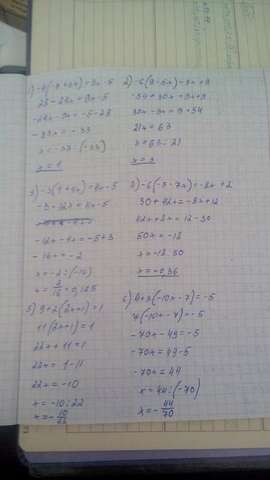 1) -7(-4+4x)=9x-5
28-28x=9x-5
-28x-9x=-5-28
-33x=-33
x=-33:(-33)
x=1
2) -6(9-5x)=9x+9
-54+30x=9x+9
30x-9x=9+54
21x=63
x=63:21
x=3
3) -3(1+4x)=4x-5
-3-12x=4x-5
-12x-4x=-5+3
-16x=-2
x=-2:(-16)
x=2/16=0,125
-6(-5-7x)=-8x+12
30+42x=-8x+12
42x+8x=12-30
50x=-18
x=-18:50
x=-0,36
5) 9+2(2x+1)=1
11(2x+1)=1
22x+11=1
22x=1-11
22x=-10
x=-10:22
x=-10/22
6) 4+3(-10x-7)=-5
7(-10x-7)=-5
-70x-49=-5
-70x=49-5
-70x=44
x=44:(-70)
x=-44/70